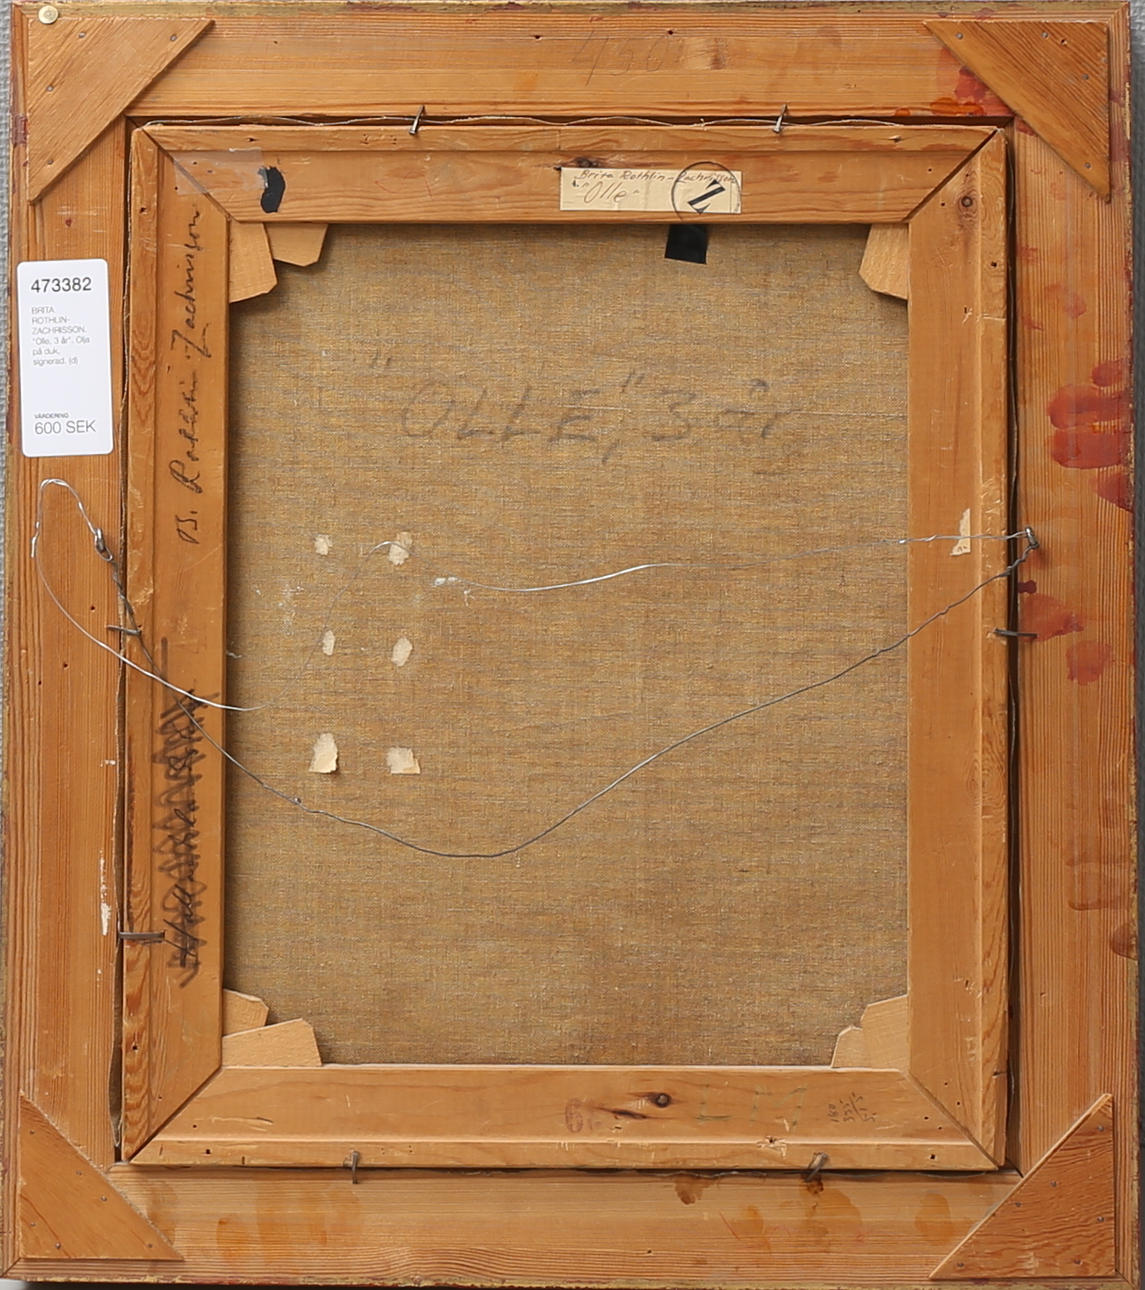 450
Brita Rothlin-Zachrisson
"Olle"
Z
473382
BRITA
ROTHLIN-
ZACHRISSON.
"Olle, 3 år". Olja
på duk,
signerad. (d)
VÄRDERING
600 SEK
B. Rothlin-Zachrisson
"OLLE," 3 år